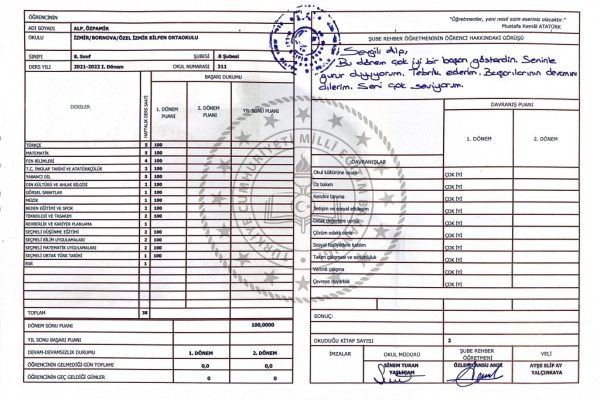 ÖĞRENCİNİN
ADI SOYADI ALP, ÖZPAMİR
OKULU İZMİR/BORNOVA/ÖZEL İZMİR BİLFEN ORTAOKULU
SINIFI 8. Sınıf ŞUBESİ B Şubesi
DERS YILI 2021-2022 I. Dönem OKUL NUMARASI 311
DERSLER HAFTALIK DERS SAATİ BAŞARI DURUMU
1. DÖNEM PUANI 2. DÖNEM PUANI YIL SONU PUANI
TÜRKÇE 5 100
MATEMATİK 5 100
FEN BİLİMLERİ 4 100
T.C. İNKILAP TARİHİ VE ATATÜRKÇÜLÜK 2 100
YABANCI DİL 5 100
DİN KÜLTÜRÜ VE AHLAK BİLGİSİ 2 100
GÖRSEL SANATLAR 1 100
MÜZİK 1 100
BEDEN EĞİTİMİ VE SPOR 2 100
TEKNOLOJİ VE TASARIM 2 100
REHBERLİK VE KARİYER PLANLAMA 1
SEÇMELİ DÜŞÜNME EĞİTİMİ 2 100
SEÇMELİ BİLİM UYGULAMALARI 2 100
SEÇMELİ MATEMATİK UYGULAMALARI 2 100
SEÇMELİ ORTAK TÜRK TARİHİ 1 100
1
TOPLAM 38
DÖNEM SONU PUANI 100,0000
YIL SONU BAŞARI PUANI
DEVAM-DEVAMSIZLIK DURUMU 1. DÖNEM 2. DÖNEM
ÖĞRENCİNİN GELMEDİĞİ GÜN TOPLAMI 0,0 0,0
ÖĞRENCİNİN GEÇ GELDİĞİ GÜNLER 0 0
TÜRKİYE CUMHURİYETİ MİLLÎ EĞİTİM
"Öğretmenler, yeni nesil sizin eseriniz olacaktır."
Mustafa Kemâl ATATÜRK
ŞUBE REHBER ÖĞRETMENİNİN ÖĞRENCİ HAKKINDAKİ GÖRÜŞÜ
Sevgili Alp,
Bu dönem çok iyi bir başarı gösterdin. Seninle
gurur duyuyorum. Tebrik ederim. Başarılarının devamını
dilerim. Seni çok seviyorum.
DAVRANIŞ PUANI
DAVRANIŞLAR 1. DÖNEM 2. DÖNEM
Okul kültürüne uyum ÇOK İYİ
Öz bakım ÇOK İYİ
Kendini tanıma ÇOK İYİ
İletişim ve sosyal etkileşim ÇOK İYİ
Ortak değerlere uyma ÇOK İYİ
Çözüm odaklı olma ÇOK İYİ
Sosyal faaliyetlere katılım ÇOK İYİ
Takım çalışması ve sorumluluk ÇOK İYİ
Verimli çalışma ÇOK İYİ
Çevreye duyarlılık ÇOK İYİ
SONUÇ:
OKUDUĞU KİTAP SAYISI 2
İMZALAR OKUL MÜDÜRÜ ŞUBE REHBER ÖĞRETMENİ VELİ
SİNEM TURAN
AYŞE ELİF AY YALÇINKAYA